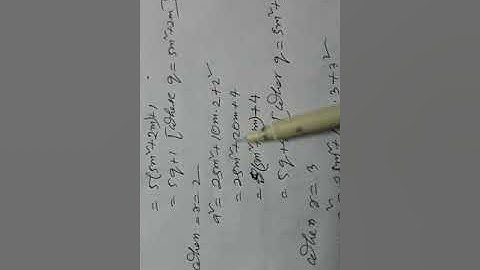 = 5(5m²+2m)+1
= 5q+1 [Where q = 5m²+2m]
When = r = 2
a² = 25m²+10m.2+2²
= 25m²+20m+4
= 5(5m² m)+4
= 5q+ [Where q = 5m²+
When r = 3
² = 25m² .3+3²